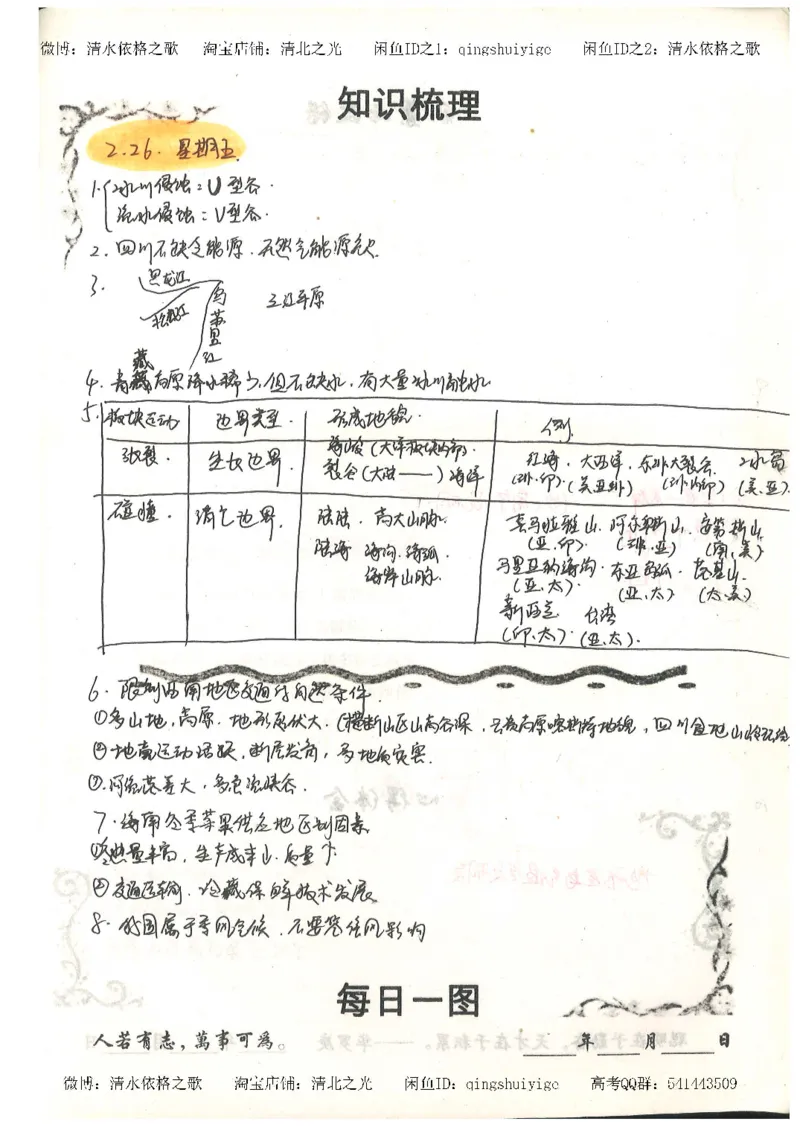 微博：清水依格之歌 淘宝店铺：清北之光 闲鱼ID之1：qingshuiyige 闲鱼ID之2：清水依格之歌
知识梳理
2.26. 星期五
1. 冰川侵蚀：U型谷.
流水侵蚀：V型谷.
2. 四川不缺乏能源.天然气能源多
3. 黑龙江
松花江
乌苏里江
三江平原
藏
4. 青藏高原降水稀少，但不缺水，有大量冰川融水
5. 板块运动 边界类型. 形成地貌. 例.
张裂. 生长边界. 海岭（大洋板块内部）.
裂谷（大陆——）海洋
红海. 大西洋. 东非大裂谷. 冰岛
(非.印). (美亚非) (非.印) (美.亚).
碰撞. 消亡边界. 陆陆. 高大山脉.
陆海 海沟.岛弧.
海岸山脉.
喜马拉雅山. 阿尔卑斯山. 安第斯山.
(亚.印). (非.亚) (南.美)
马里亚纳海沟. 东亚岛弧. 落基山.
(亚、太). (亚、太) (太.美)
新西兰 台湾
(印、太). (亚、太).
6. 限制西南地区交通的自然条件.
①多山地，高原. 地形起伏大.（横断山区山高谷深，云贵高原喀斯特地貌，四川盆地山岭环绕
②地壳运动活跃，断层发育，多地质灾害.
③.河流落差大，多急流峡谷.
7. 海南冬季菜果供应地区划因素
①热量丰富，生产成本
②交通运输. 冷藏保鲜技术发展
8. 我国属于季风气候. 不要答信风影响
每日一图
人若有志，萬事可為。 年 月 日
微博：清水依格之歌 淘宝店铺：清北之光 闲鱼ID：qingshuiyige 高考QQ群：541443509